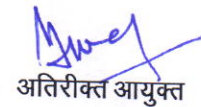 अतिरीक्त आयुक्त